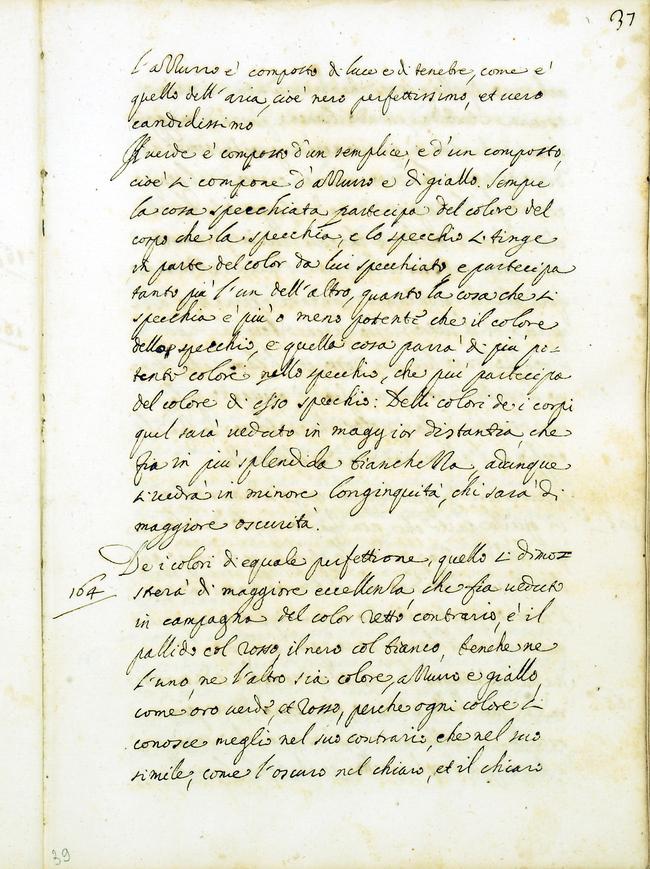 37
L'azzurro è composto di luce e di tenebre, come è
quello dell'aria, cioè nero perfettissimo, et vero
candidissimo
Il verde è composto d'un semplice, e d'un composto,
cioè si compone d'azzurro e di giallo. Sempre
la cosa specchiata partecipa del colore del
corpo che la specchia, e lo specchio si tinge
in parte del color da lui specchiato, e partecipa
tanto più l'un dell'altro, quanto la cosa che si
specchia è più o meno potente che il colore
dello specchio, e quella cosa parrà di più po-
tente colore nello specchio, che più partecipa
del colore di esso specchio: Delli colori de i corpi
quel sarà veduto in maggior distantia che
fia in più splendida bianchezza adunque
si vedrà in minore longinquità, chi sarà di
maggiore oscurità.
De i colori di equale perfettione, quello si dimo=
164 sterà di maggiore eccellenza che fia veduto
in campagna del color retto contrario, è il
pallido col rosso, il nero col bianco, benche ne
l'uno, ne l'altro sia colore, azzurro e giallo
come oro verde, et rosso, perche ogni colore si
conosce megli nel suo contrario, che nel suo
simile, come l'oscuro nel chiaro, et il chiaro
39